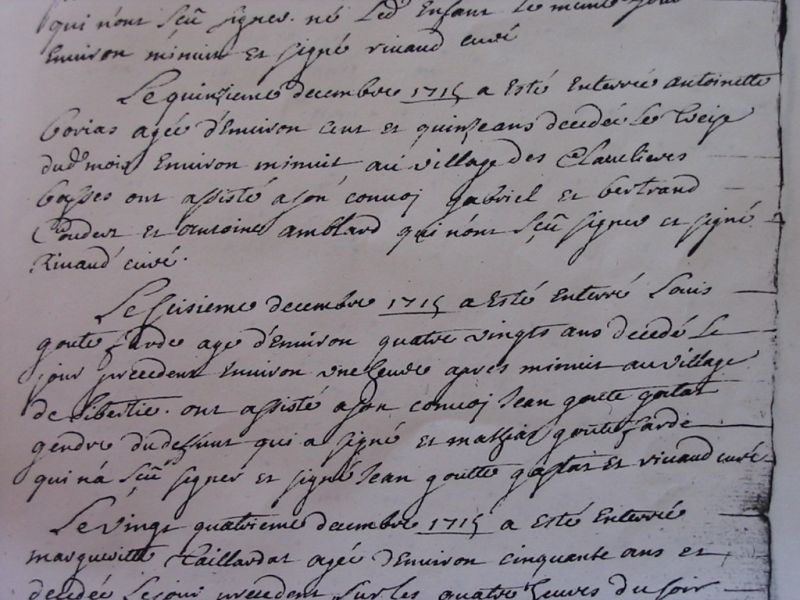 qui n'ont sçu signer. né led Enfant le meme jour
Environ minuit Et signé rivaud curé
Le quinzieme decembre 1715 a Esté Enterrée Antoinette
borias agée d'Environ cent et quinze ans decedée le treize
dud mois Environ minuit au village des
basses ont assisté a son convoi gabriel et bertrand
Coudert et Antoine amblard qui n'ont sçu signer et signé
Rivaud curé.
Le seisieme decembre 1715 a Esté Enterré Louis
goute farde age d'Environ quatre vingts ans decedé le
jour precedent Environ une heure apres minuit au village
de libertie. ont assisté a son convoi Jean goute gatat
gendre du defunt qui a signé et mathias goute farde
qui n'a sçu signer et signé Jean goutte gastat Et rivaud curé
Le vingt quatrieme decembre 1715 a Esté Enterrée
marguerite Taillardat agée d'Environ cinquante ans et
decedée le jour precedent sur les quatre heures du soir